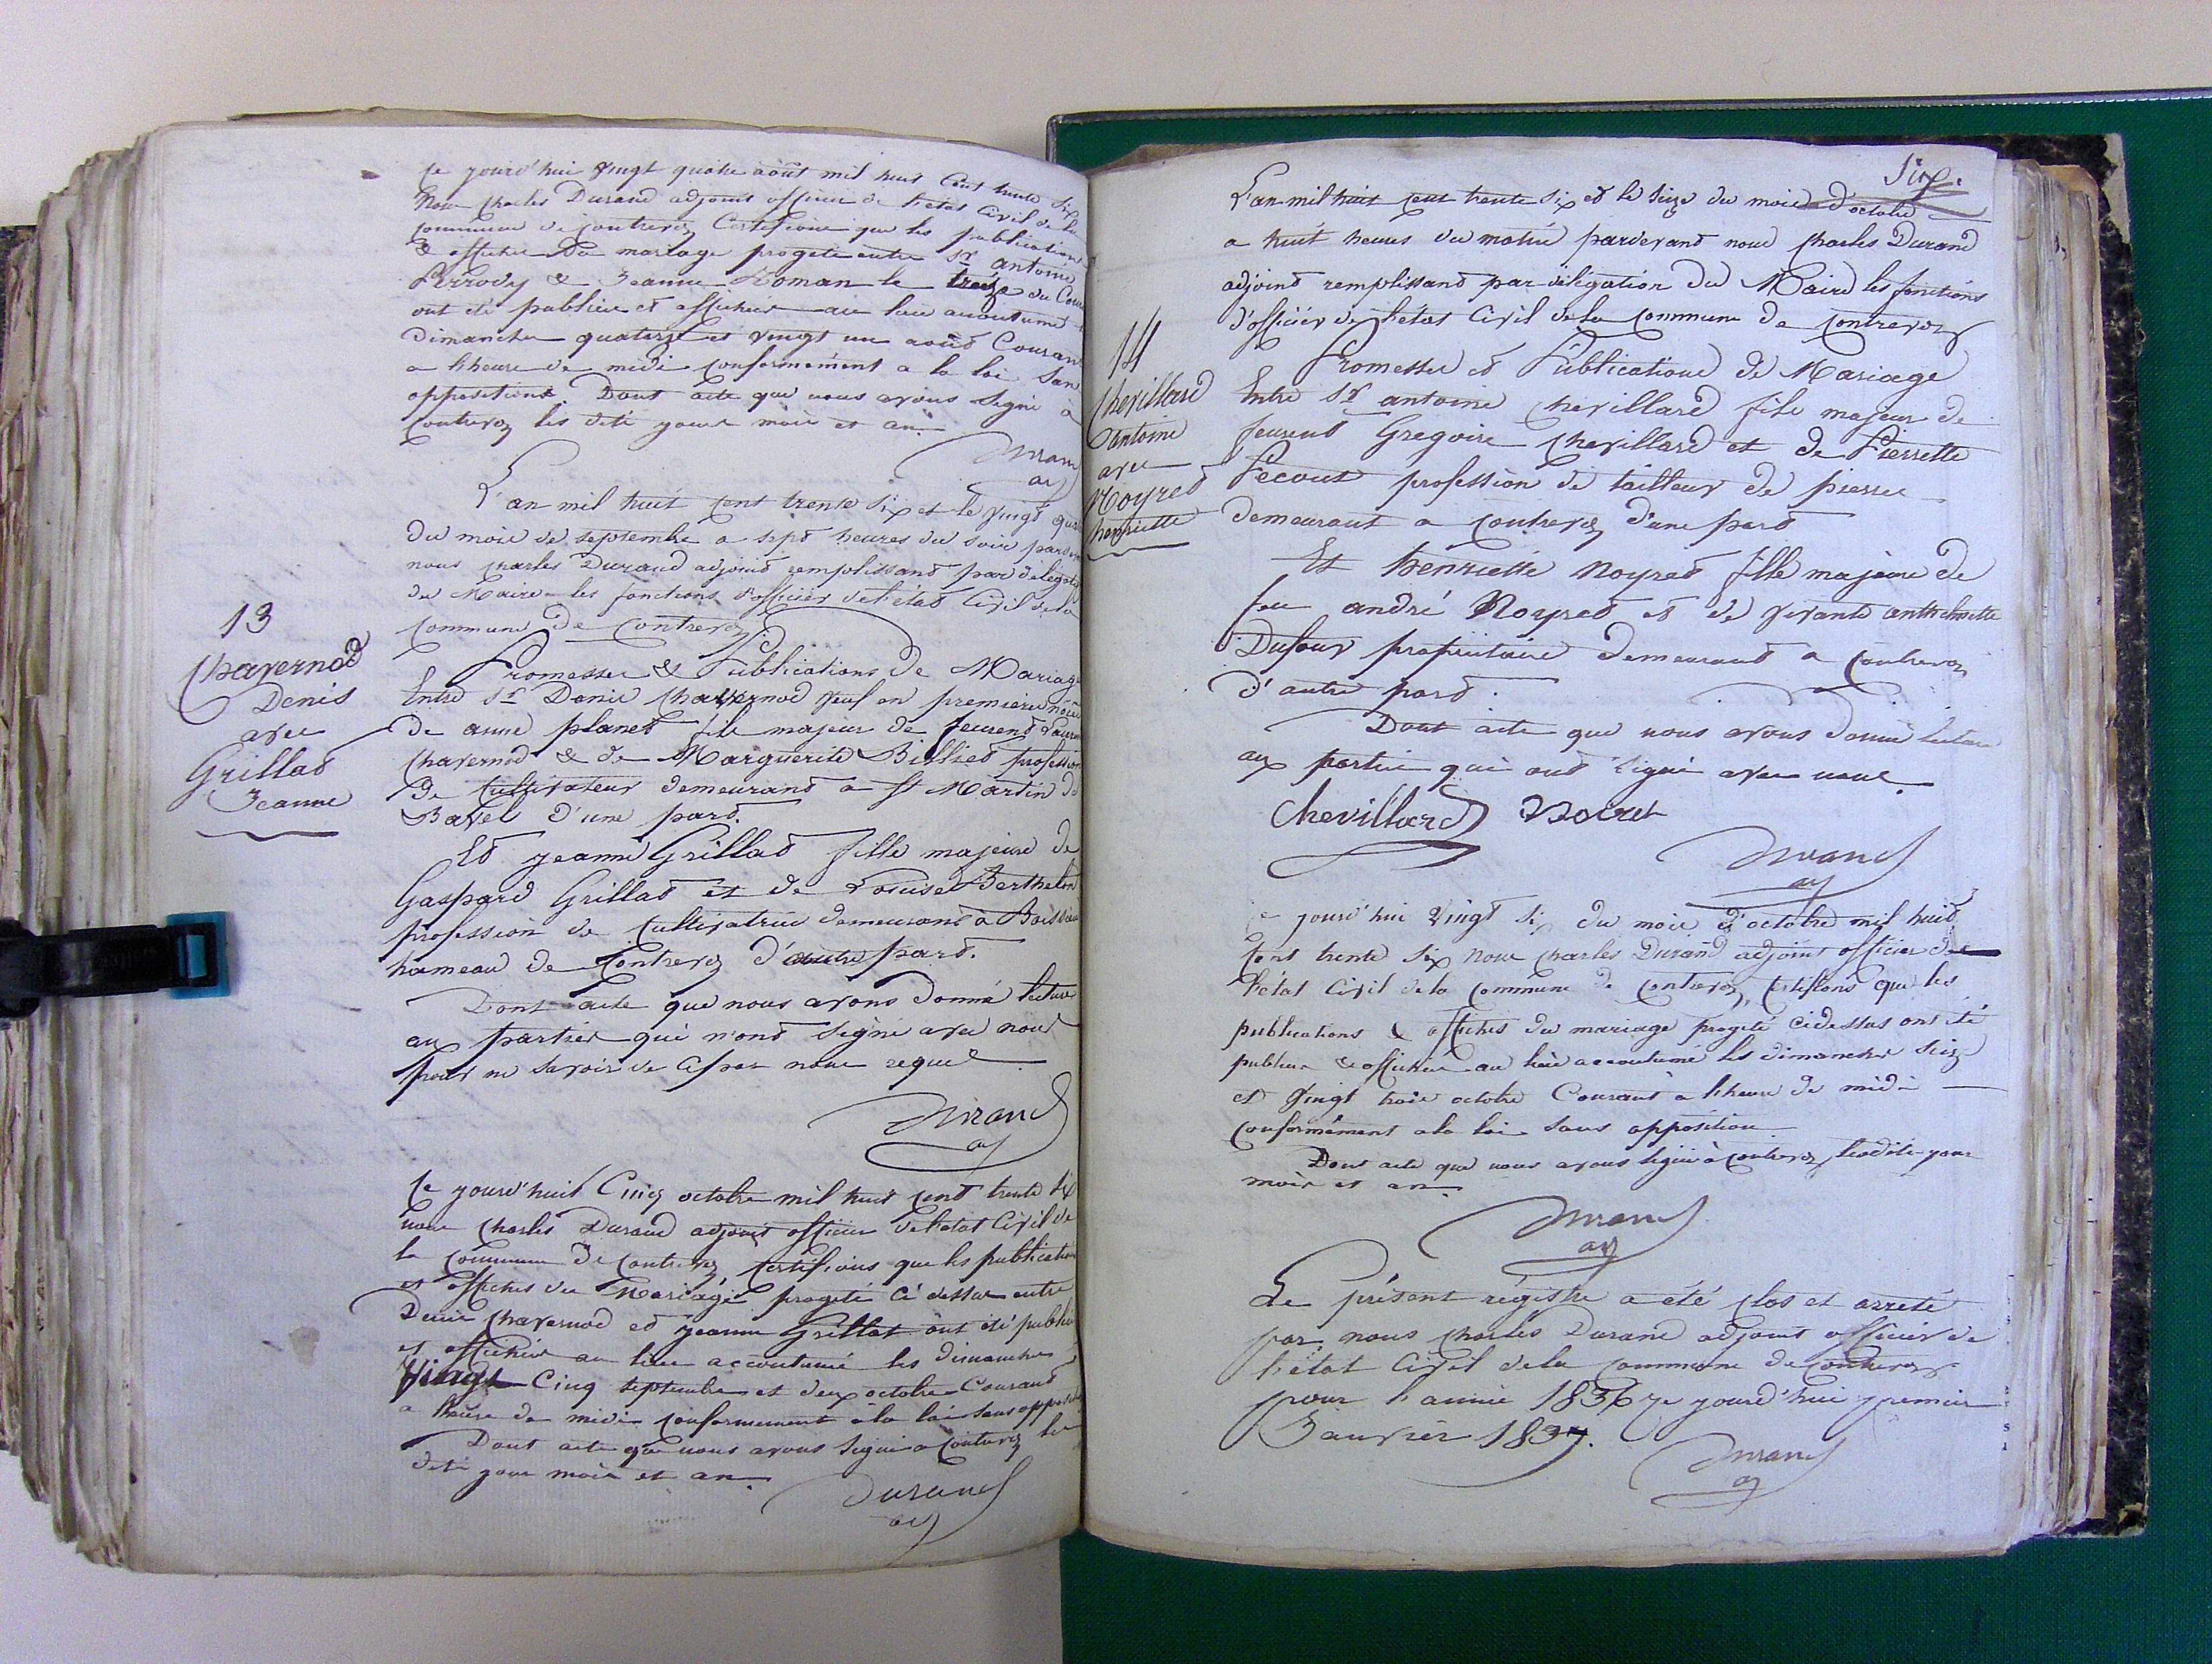 Ce jourd'hui vingt quatre août mil huit cent trente six
Nous Charles Durand adjoint officier de l'etat Civil de la
commune de contrevoz Certifions que les publications
& affiches du mariage progeté entre Sr antoine
Perrody & Jeanne Roman le treize du Cour
ont été publiées et affichées au lieu accoutumé
Dimanches quatorze et vingt un août Courant
a l'heure de midi conformément a la loi San
oppositions. Dont acte que nous avons signé à
contrevoz les dits jour mois et an.
Durand
aj
L'an mil huit cent trente six et le vingt qua
du mois de septembre a sept heures du soir pardev
nous charles Durand adjoint remplissant par délégation
du Maire les fonctions d'officier de l'état Civil de la
commune de Contrevoz
13
Chavernod
Denis
avec
Grillat
Jeanne
Promesses & Publications de Mariage
Entre Sr Denis Chavernod veuf en premieres noces
de anne planet fils majeur de feurent Lauren
Chavernod & de Marguerite Billiet profession
De Cultivateur demeurand a St Martin de
Bavel d'une part.
Et jeanne Grillat fille majeure de
Gaspard Grillat et de Louise Berthelon
profession de Cultivatrice demeurant à Boissieu
hameau de Contrevoz d'autre part.
Dont acte que nous avons donné lecture
aux parties qui n'ont signé avec nous
pour ne savoir de ce par nous requis
Durand
aj
Ce jourd'huit Cinq octobre mil huit cent trente six
nous Charles Durand adjoint officier de l'etat Civil de
la commune de Contrevoz Certifions que les publications
et affiches du Mariage progeté ci dessus entre
Denis Chavernod et jeanne Grillat ont été publiées
et affichées au lieu accoutumé les dimanches
Vingt Cinq septembre et deux octobre Courant
a l'heure de midi conformement à la loi sans oppositi
Dont acte que nous avons signé a Contrevoz les
dits jour mois et an.
Durand
aj
Six.
L'an mil huit cent trente six et le seize du mois d'octobre
a huit heures du matin pardevant nous Charles Durand
adjoint remplissant par délégation du Maire les fonctions
d'officier de l'état Civil de la commune de Contrevoz
14
Chevillard
antoine
avec
Noyret
henriette
Promesses et Publications de Mariage
Entre Sr antoine Chevillard fils majeur de
feurent Gregoire Chevillard et de Pierrette
Pecout profession de tailleur de pierres
demeurant a Contrevoz d'une part
Et henriette Noyret fille majeure de
feu andré Noyret et de vivante
Dufour propriétaire demeurant a Contrevoz
d'autre part.
Dont acte que nous avons donné lecture
aux parties qui ont signé avec nous.
Chevillard Noiret
Durand
aj
Ce jourd'hui vingt six du mois d'octobre mil huit
Cent trente six Nous Charles Durand adjoint officier de
l'état Civil de la Commune de Contrevoz, Certifions que les
publications & affiches du mariage progeté cidessus ont été
publiées & affichées au lieu accoutumé les dimanches seize
et vingt trois octobre Courant a l'heure de midi
conformément a la loi sans opposition
Dont acte que nous avons signé à Contrevoz, lesdits jour
mois et an.
Durand
aj
Le présent régistre a été clos et arrêté
par nous Charles Durand adjoint officier de
l'état Civil de la Commune de Contrevoz
pour l'année 1836 ce jourd'hui premier
Janvier 1837.
Durand
aj